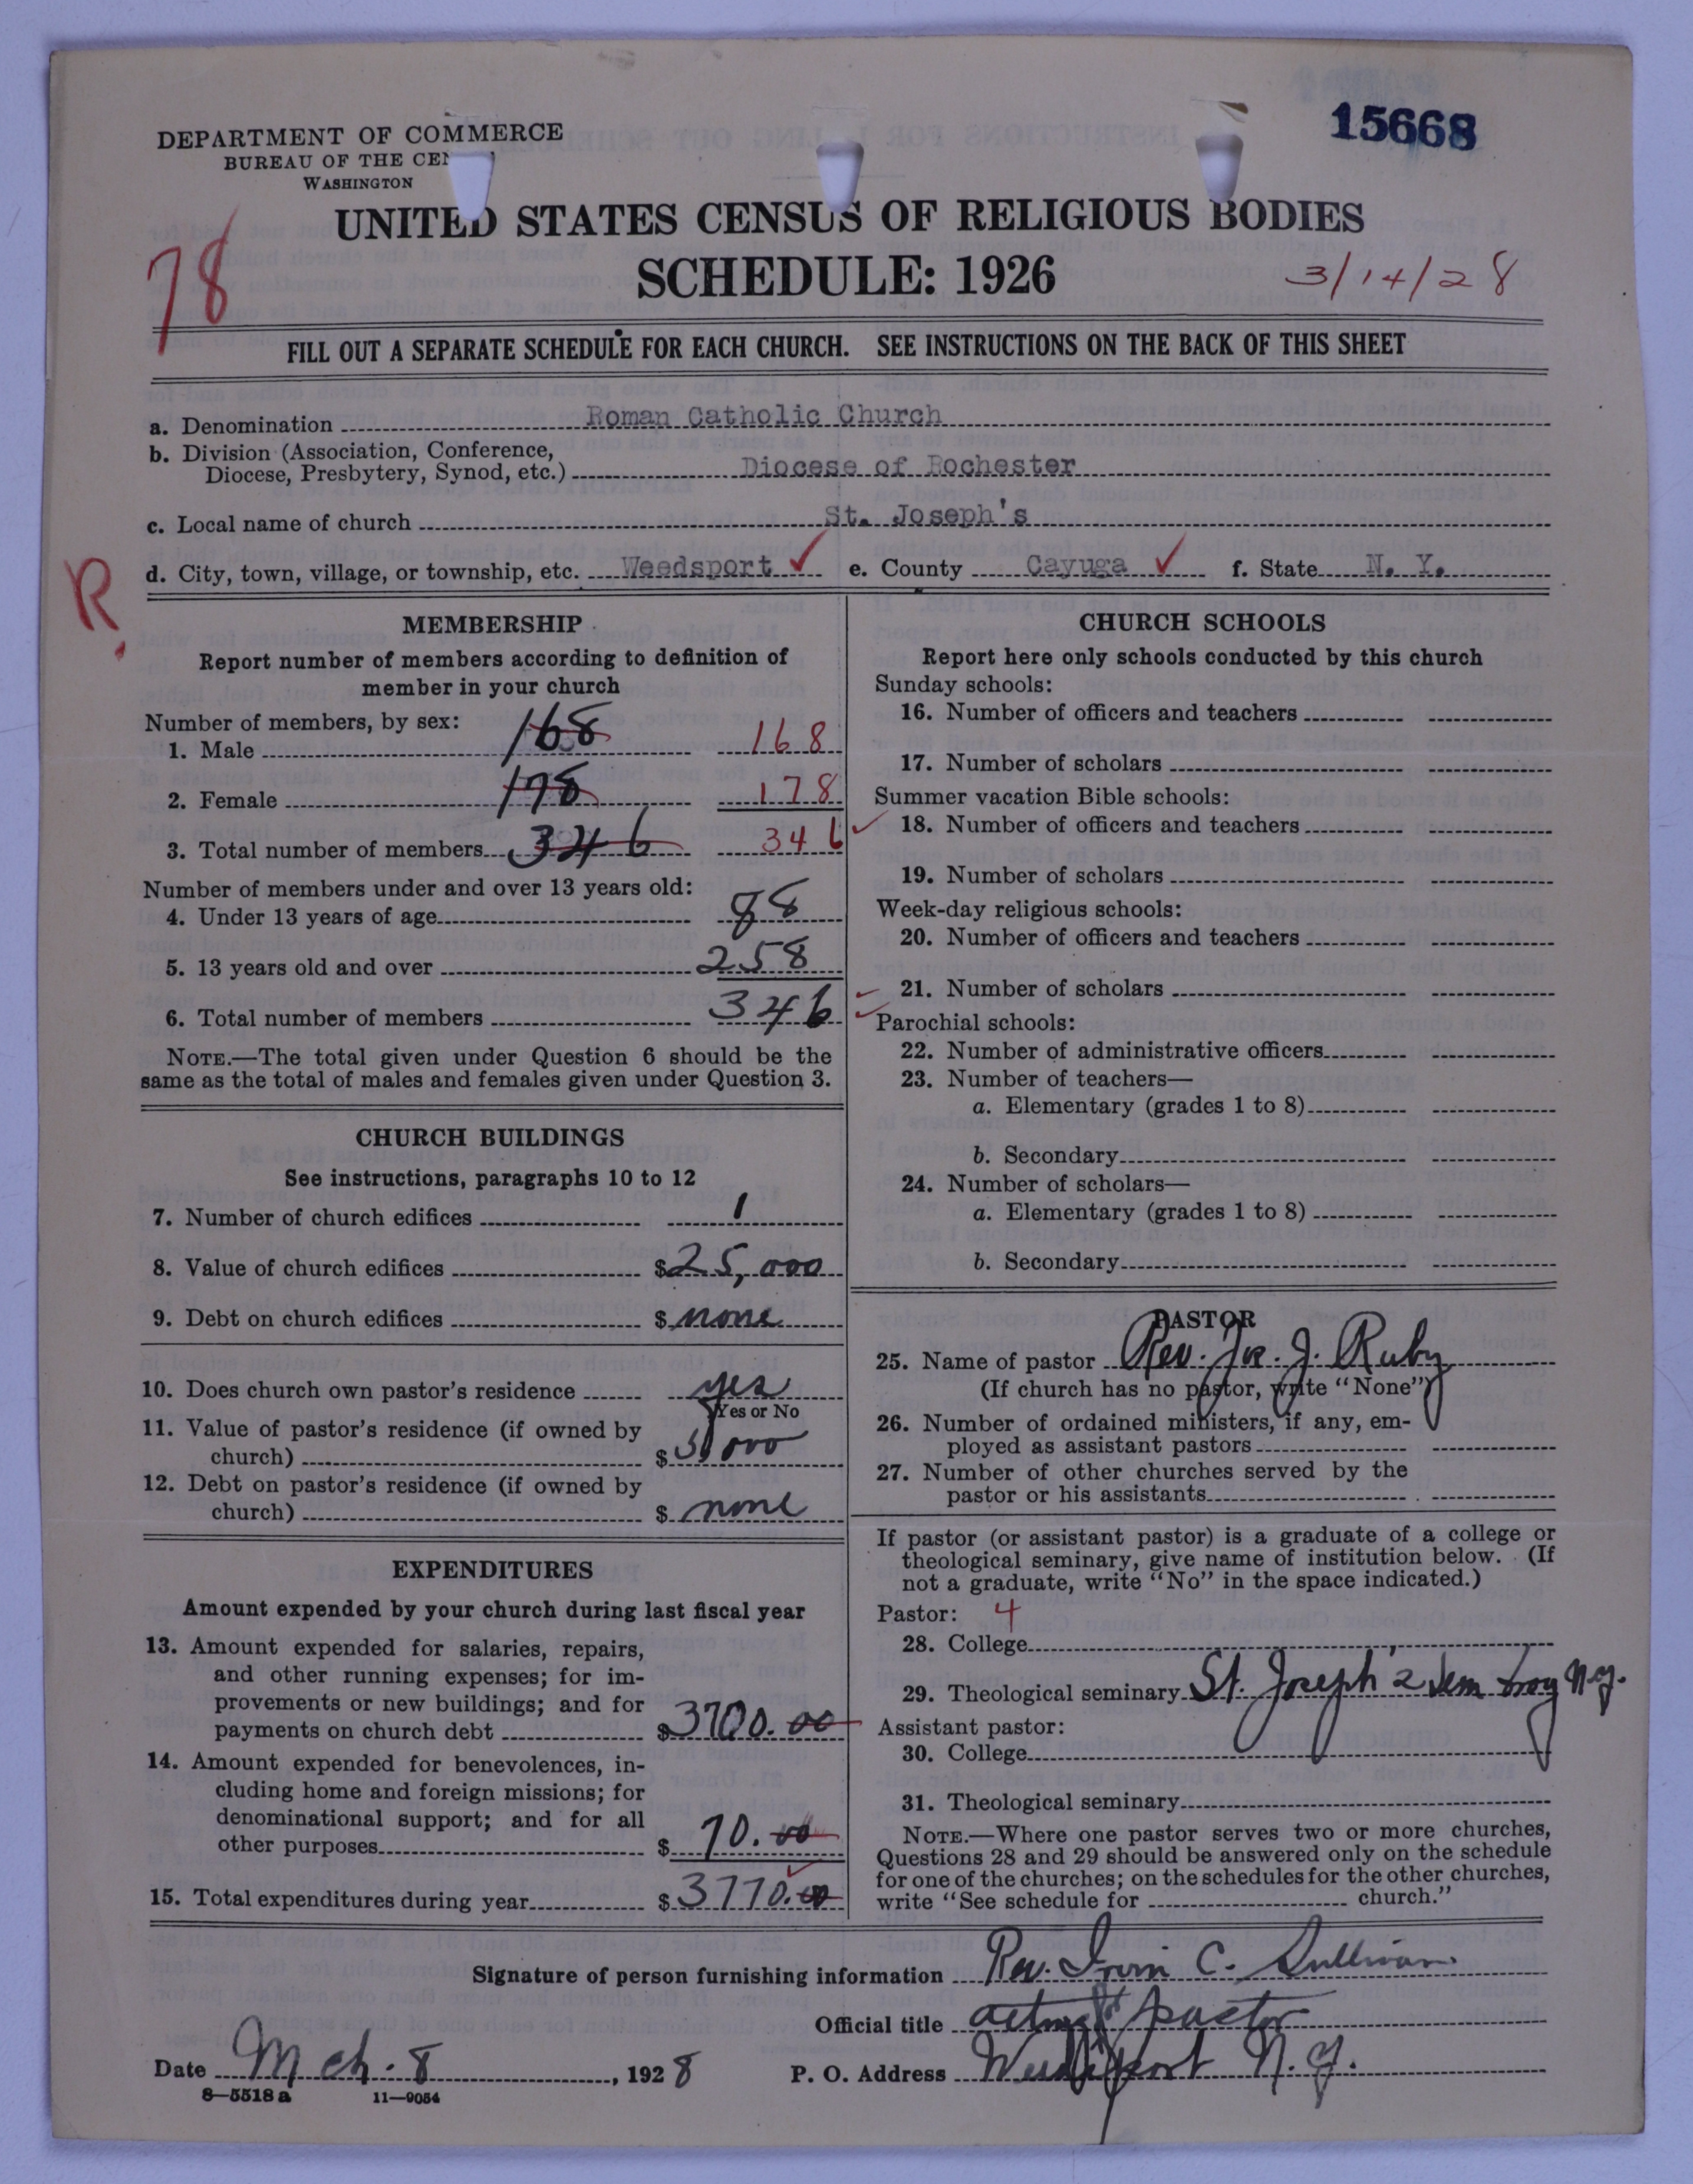 15668
DEPARTMENT OF COMMERCE
BUREAU OF THE CEN
WASHINGTON
UNITED STATES CENSUS OF RELIGIOUS BODIES
SCHEDULE: 1926
3/14/28
78
FILL OUT A SEPARATE SCHEDULE FOR EACH CHURCH. SEE INSTRUCTIONS ON THE BACK OF THIS SHEET
a. Denomination Roman Catholic Church
b. Division (Association, Conference,
Diocese, Presbytery, Synod, etc.) Diocese of Rochester
c. Local name of church St. Joseph's
d. City, town, village, or township, etc. Weedsport ✓ e. County Cayuga ✓ f. State N. Y.
R.
MEMBERSHIP
Report number of members according to definition of
member in your church
Number of members, by sex:
1. Male 168 168
2. Female 178 178
3. Total number of members 346 346
Number of members under and over 13 years old:
4. Under 13 years of age 88
5. 13 years old and over 258
6. Total number of members 346
NOTE.—The total given under Question 6 should be the
same as the total of males and females given under Question 3.
CHURCH BUILDINGS
See instructions, paragraphs 10 to 12
7. Number of church edifices 1
8. Value of church edifices $25,000
9. Debt on church edifices $ none
10. Does church own pastor's residence yes
Yes or No
11. Value of pastor's residence (if owned by
church) $
12. Debt on pastor's residence (if owned by
church) $ none
EXPENDITURES
Amount expended by your church during last fiscal year
13. Amount expended for salaries, repairs,
and other running expenses; for im-
provements or new buildings; and for
payments on church debt $3700.00
14. Amount expended for benevolences, in-
cluding home and foreign missions; for
denominational support; and for all
other purposes $ 70.00
15. Total expenditures during year $ 3770.00
CHURCH SCHOOLS
Report here only schools conducted by this church
Sunday schools:
16. Number of officers and teachers
17. Number of scholars
Summer vacation Bible schools:
18. Number of officers and teachers
19. Number of scholars
Week-day religious schools:
20. Number of officers and teachers
21. Number of scholars
Parochial schools:
22. Number of administrative officers
23. Number of teachers—
a. Elementary (grades 1 to 8)
b. Secondary
24. Number of scholars—
a. Elementary (grades 1 to 8)
b. Secondary
PASTOR
25. Name of pastor Rev. Jos. J. Ruby
(If church has no pastor, write "None")
26. Number of ordained ministers, if any, em-
ployed as assistant pastors
27. Number of other churches served by the
pastor or his assistants
If pastor (or assistant pastor) is a graduate of a college or
theological seminary, give name of institution below. (If
not a graduate, write "No" in the space indicated.)
Pastor: 4
28. College
29. Theological seminary St. Joseph's Sem Troy N.Y.
Assistant pastor:
30. College
31. Theological seminary
NOTE.—Where one pastor serves two or more churches,
Questions 28 and 29 should be answered only on the schedule
for one of the churches; on the schedules for the other churches,
write "See schedule for church."
Signature of person furnishing information Rev. Irvin C. Sullivan
Official title acting pastor
Date Mch. 8, 1928 P. O. Address Weedsport N.Y.
8—5518 a 11—9054